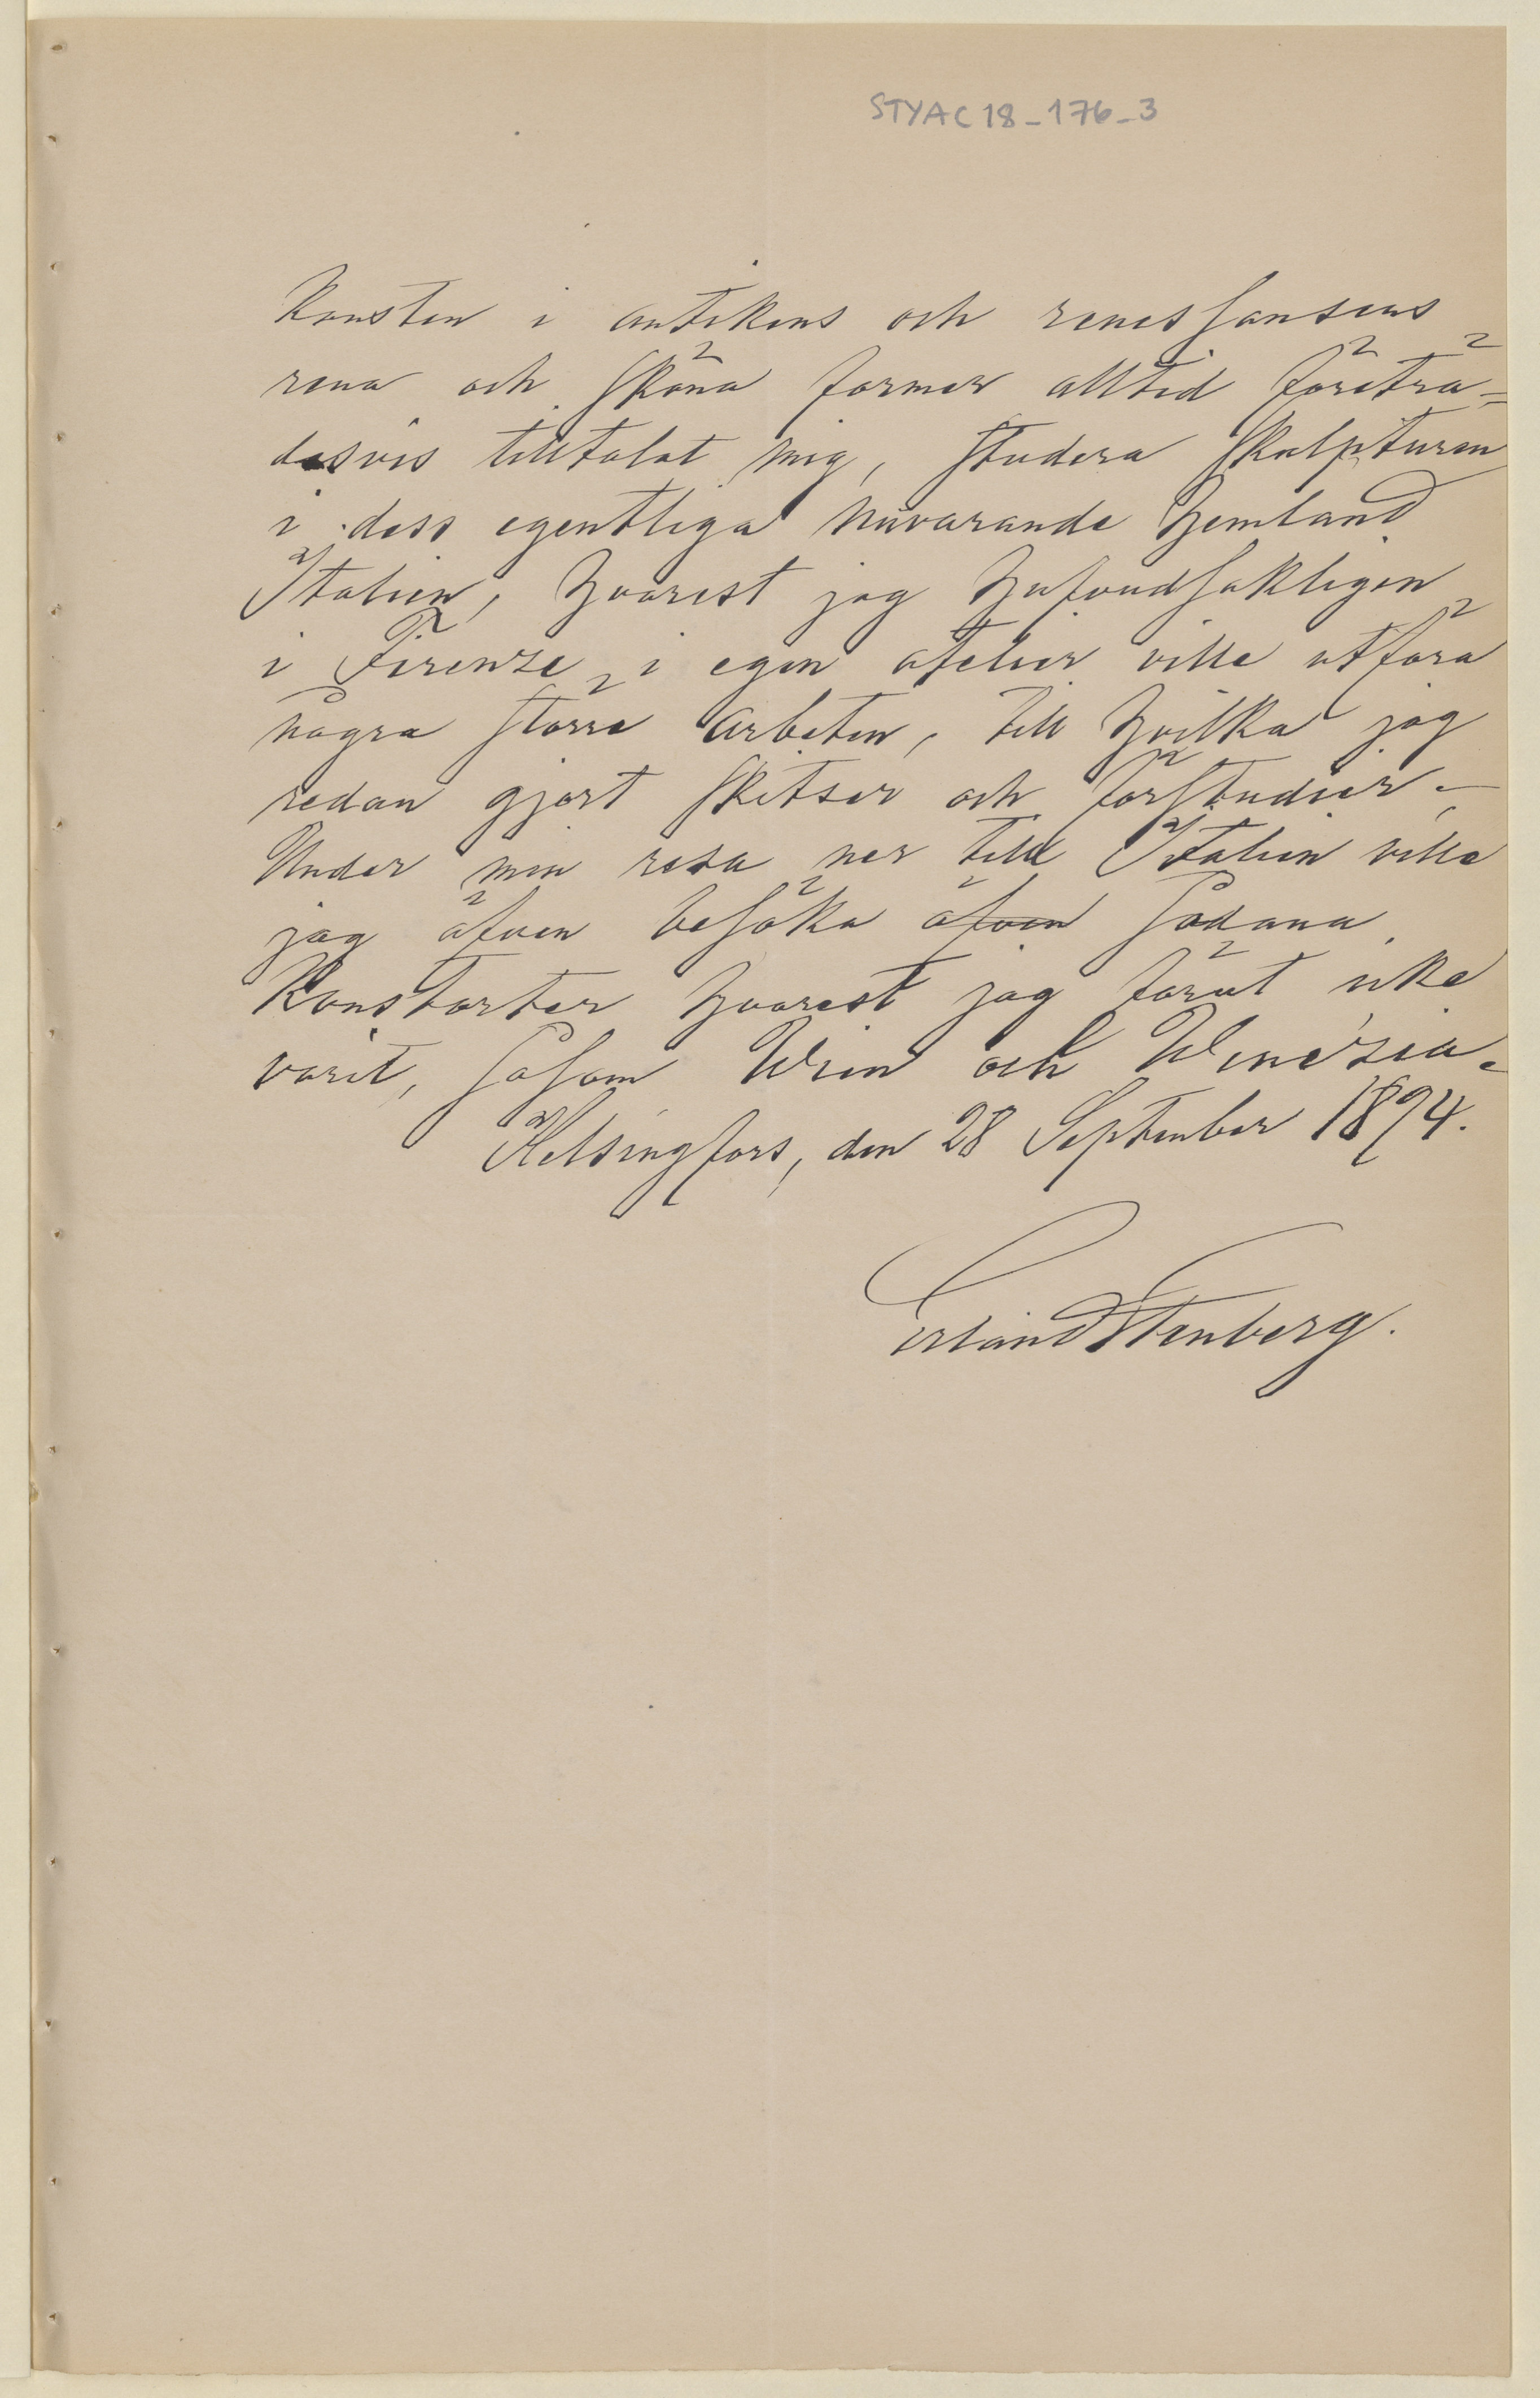 STYAC18_176_3
konsten i antikens och renessansens
rena och sköna former alltid företrä=
desvis tilltalat mig, studera skulpturen
i dess egentliga nuvarande hemland
Italien, hvarest jag hufvudsakligen
i Firenze, i egen atelier ville utföra
några större arbeten, till hvilka jag
redan gjort skitser och förstudier.
Under min resa ner till Italien ville
jag äfven besöka äfven sådana
konstorter hvarest jag förut icke
varit, såsom Wien och Venezia.
Helsingfors, den 28 September 1894.
Erland Stenberg.